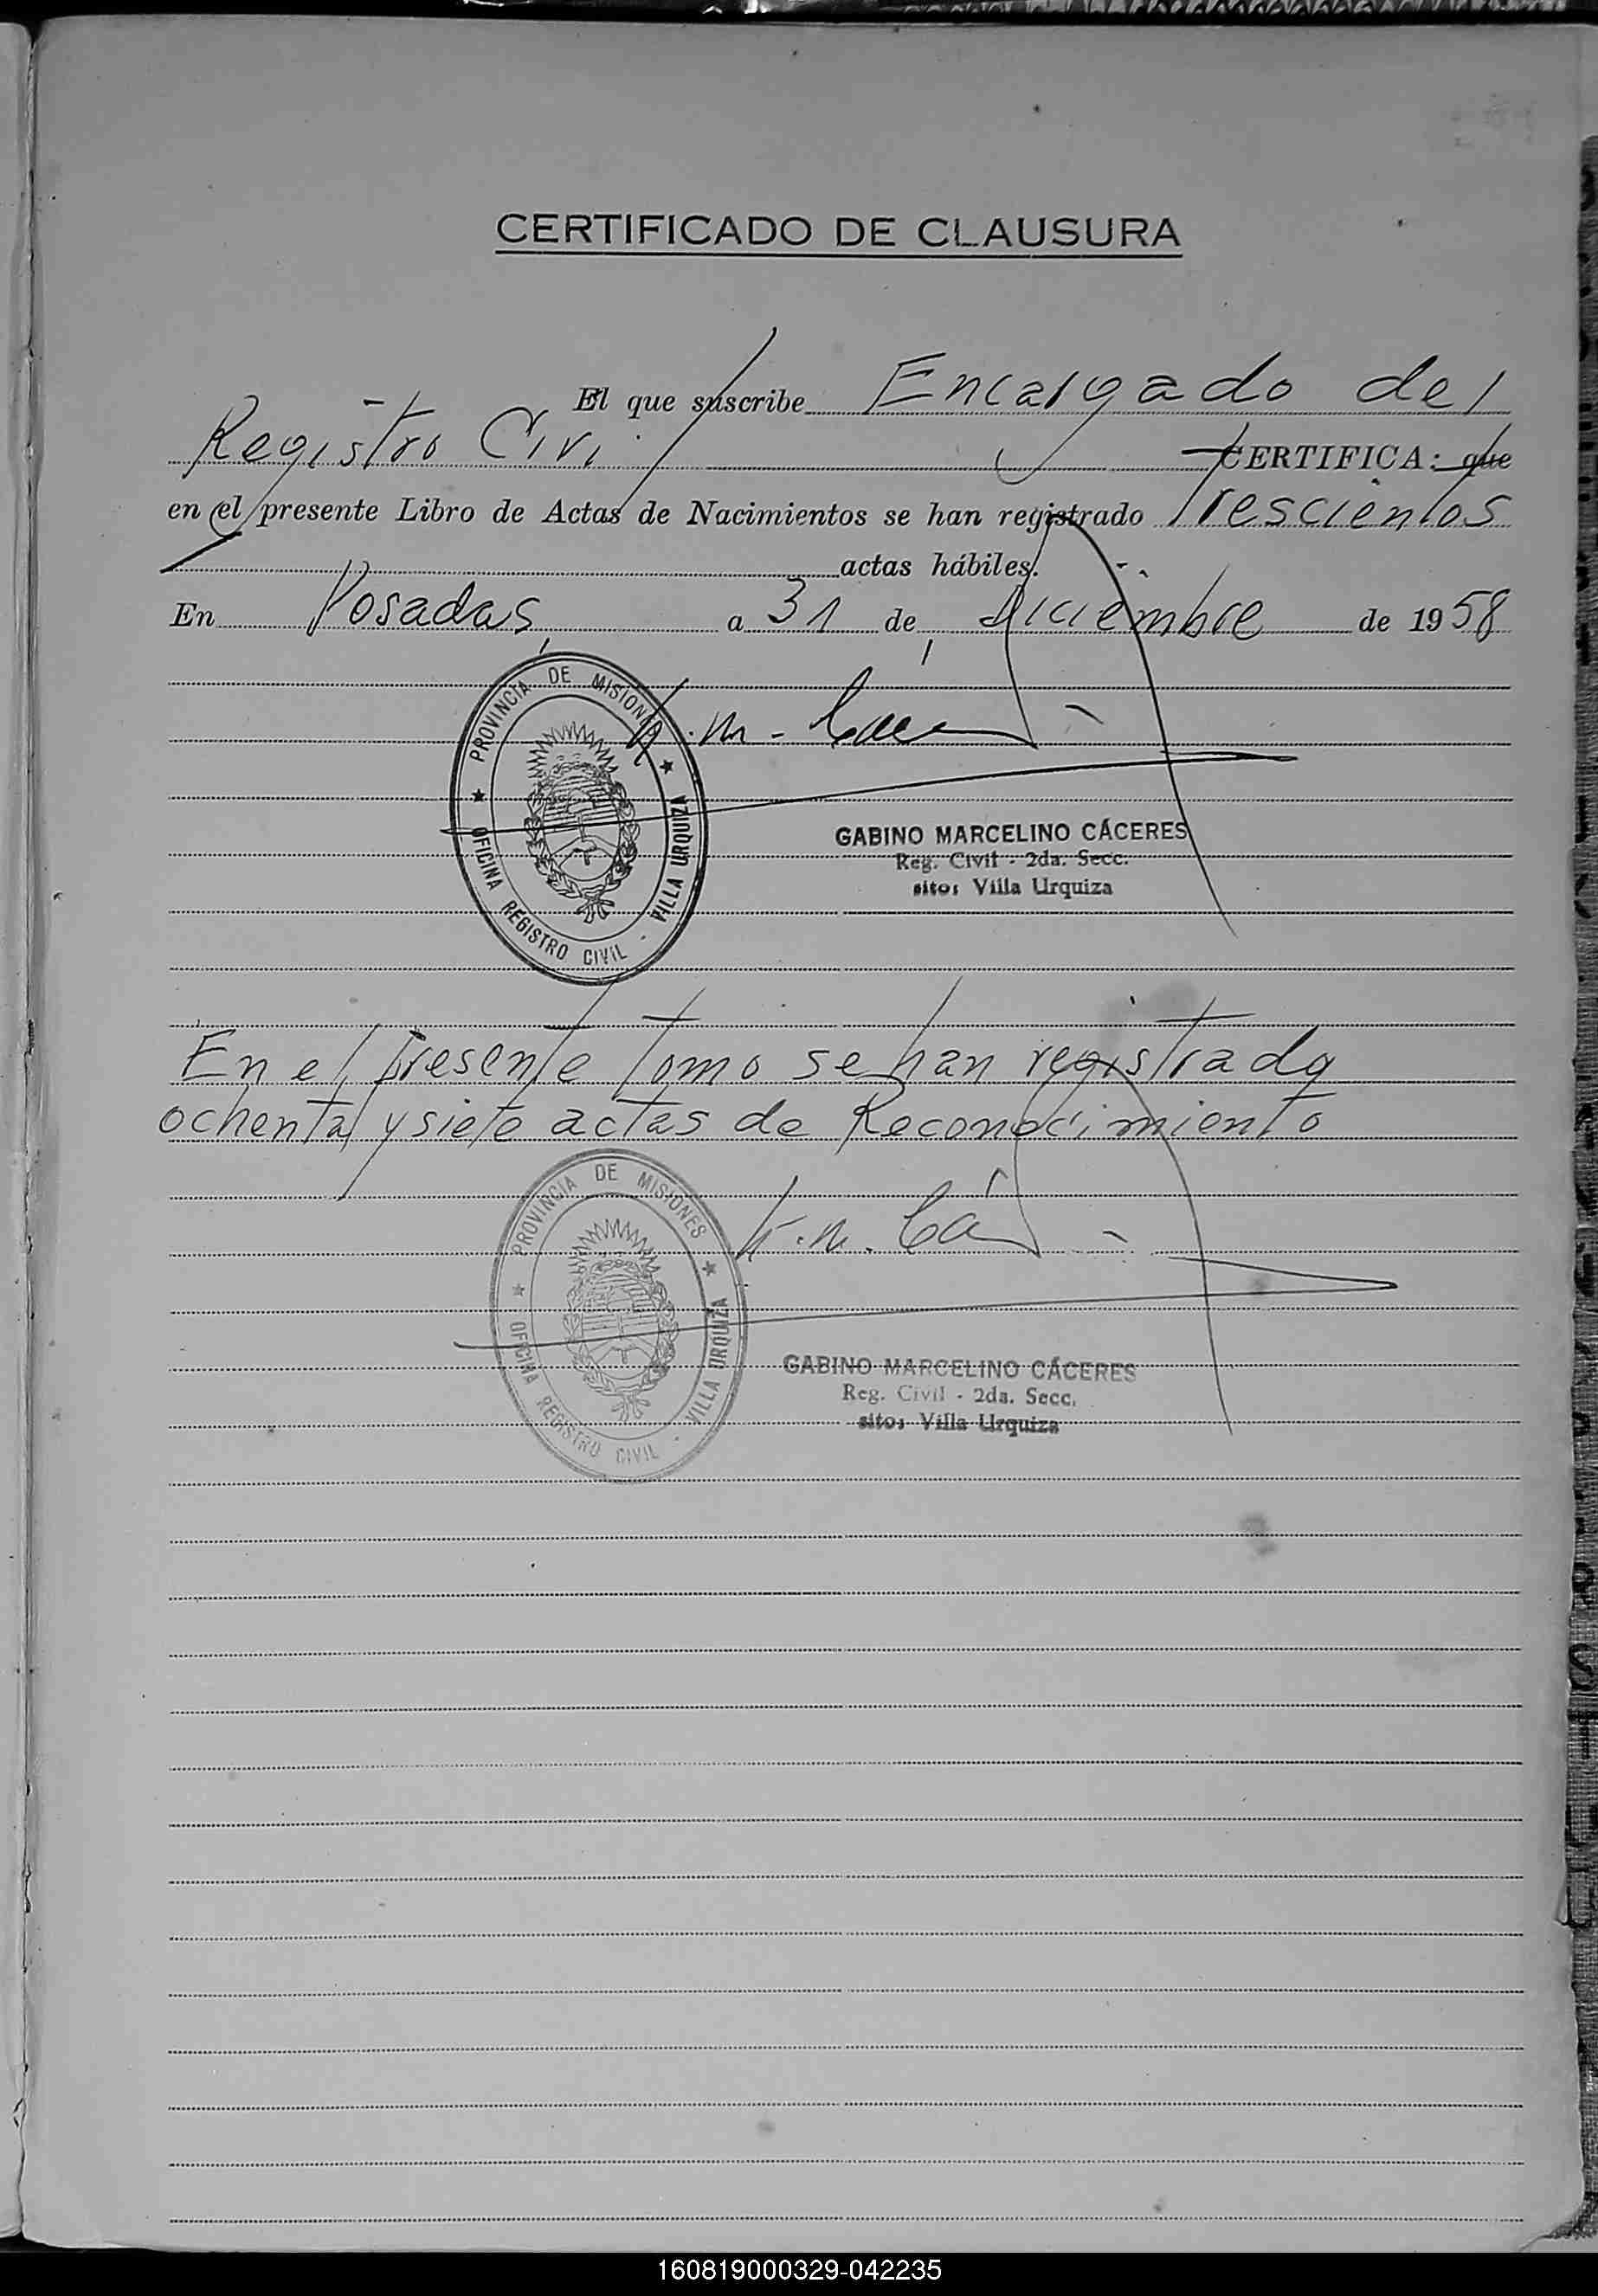 CERTIFICADO DE CLAUSURA
El que suscribe Encargado del
Registro Civil CERTIFICA: que
en el presente Libro de Actas de Nacimientos se han registrado Trescientos
actas hábiles.
En Posadas, a 31 de Diciembre de 1958
PROVINCIA DE MISIONES
OFICINA REGISTRO CIVIL - VILLA URQUIZA
GABINO MARCELINO CÁCERES
Reg. Civil - 2da. Secc.
sito: Villa Urquiza
En el presente tomo se han registrado
ochenta y siete actas de Reconocimiento
PROVINCIA DE MISIONES
OFICINA REGISTRO CIVIL - VILLA URQUIZA
GABINO MARCELINO CÁCERES
Reg. Civil - 2da. Secc.
sito: Villa Urquiza
160819000329-042235